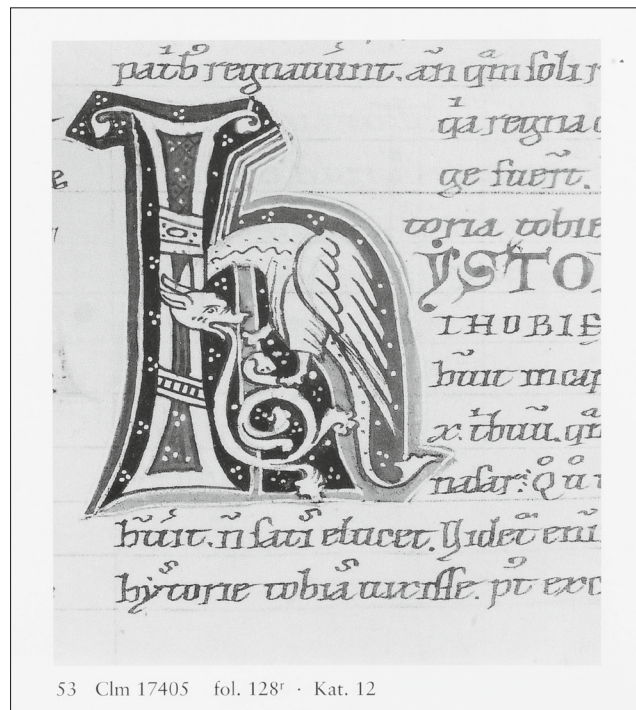 patb regnauint. an qm soli r
qa regna
ge fuert.
toria tobie
YSTO
THOBIE
buit in cap
x. tbuu. qn
nasar:
buit. n sati elucet. Videt eni
hystorie tobia uixisse. pt exc
53 Clm 17405 fol. 128ʳ · Kat. 12